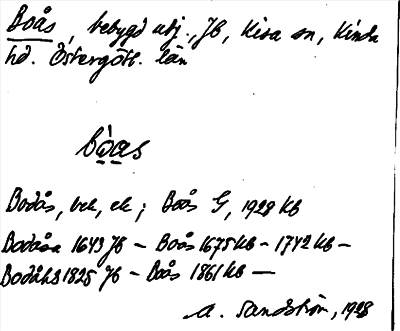 Boås, bebygd utj., JB, Kisa sn, Kinda
hd. Östergötl. län
bòas
Bodås, bek, ek; Boås G, 1928 kb
Bodåsa 1643 JB - Boås 1675 kb - 1742 kb -
Bodåhs 1825 JB - Boås 1861 kb -
A. Sandström, 1928